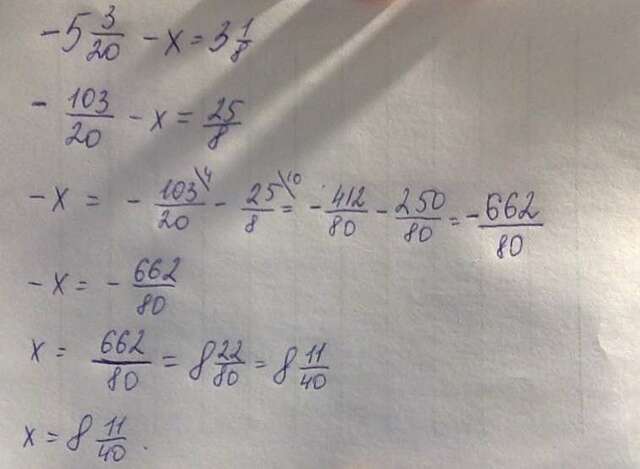 -5 3/20 - x = 3 1/8
- 103/20 - x = 25/8
-x = - 103\4/20 - 25\10/8 = - 412/80 - 250/80 = - 662/80
-x = - 662/80
x = 662/80 = 8 22/80 = 8 11/40
x = 8 11/40.